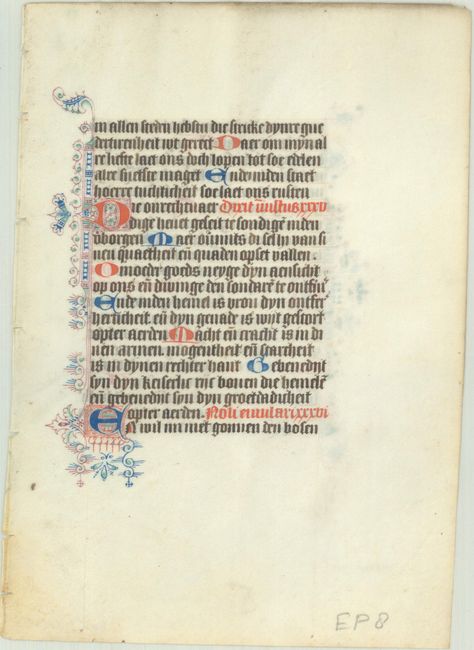 in allen steden hebben die stricke dynre gue
dertierenheit wt gerect Daer om myn al
re liefte laet ons dich lopen tot soe edelen
alre suetste maget Ende in den staet
hoerre tuchticheit soe laet ons rusten
Die onrechtuaer Dixit iniustus xxxv
dige heuet geseit te sondigē inden
v̄borgen Maer oumits di selly van si
nen quaetheit eñ quaden opset vallen.
O moeder goeds neyge dyn aensicht
op ons eñ dwinge den sondarē te ontfīn
Ende in den hemel is vrou dyn ontfer
herticheit. eñ dyn genade is wijt gestort
opter aerden Macht eñ cracht is in di
nen armen. mogentheit eñ starcheit
is in dynen rechter hant Gebenedijt
syn dyn keiserlic rijc bouen die hemelē
eñ gebenedijt syn dyn groetdadicheit
opter aerden. Noli emulari xxxvi
En wil nu niet gonnen den bosen
EP8